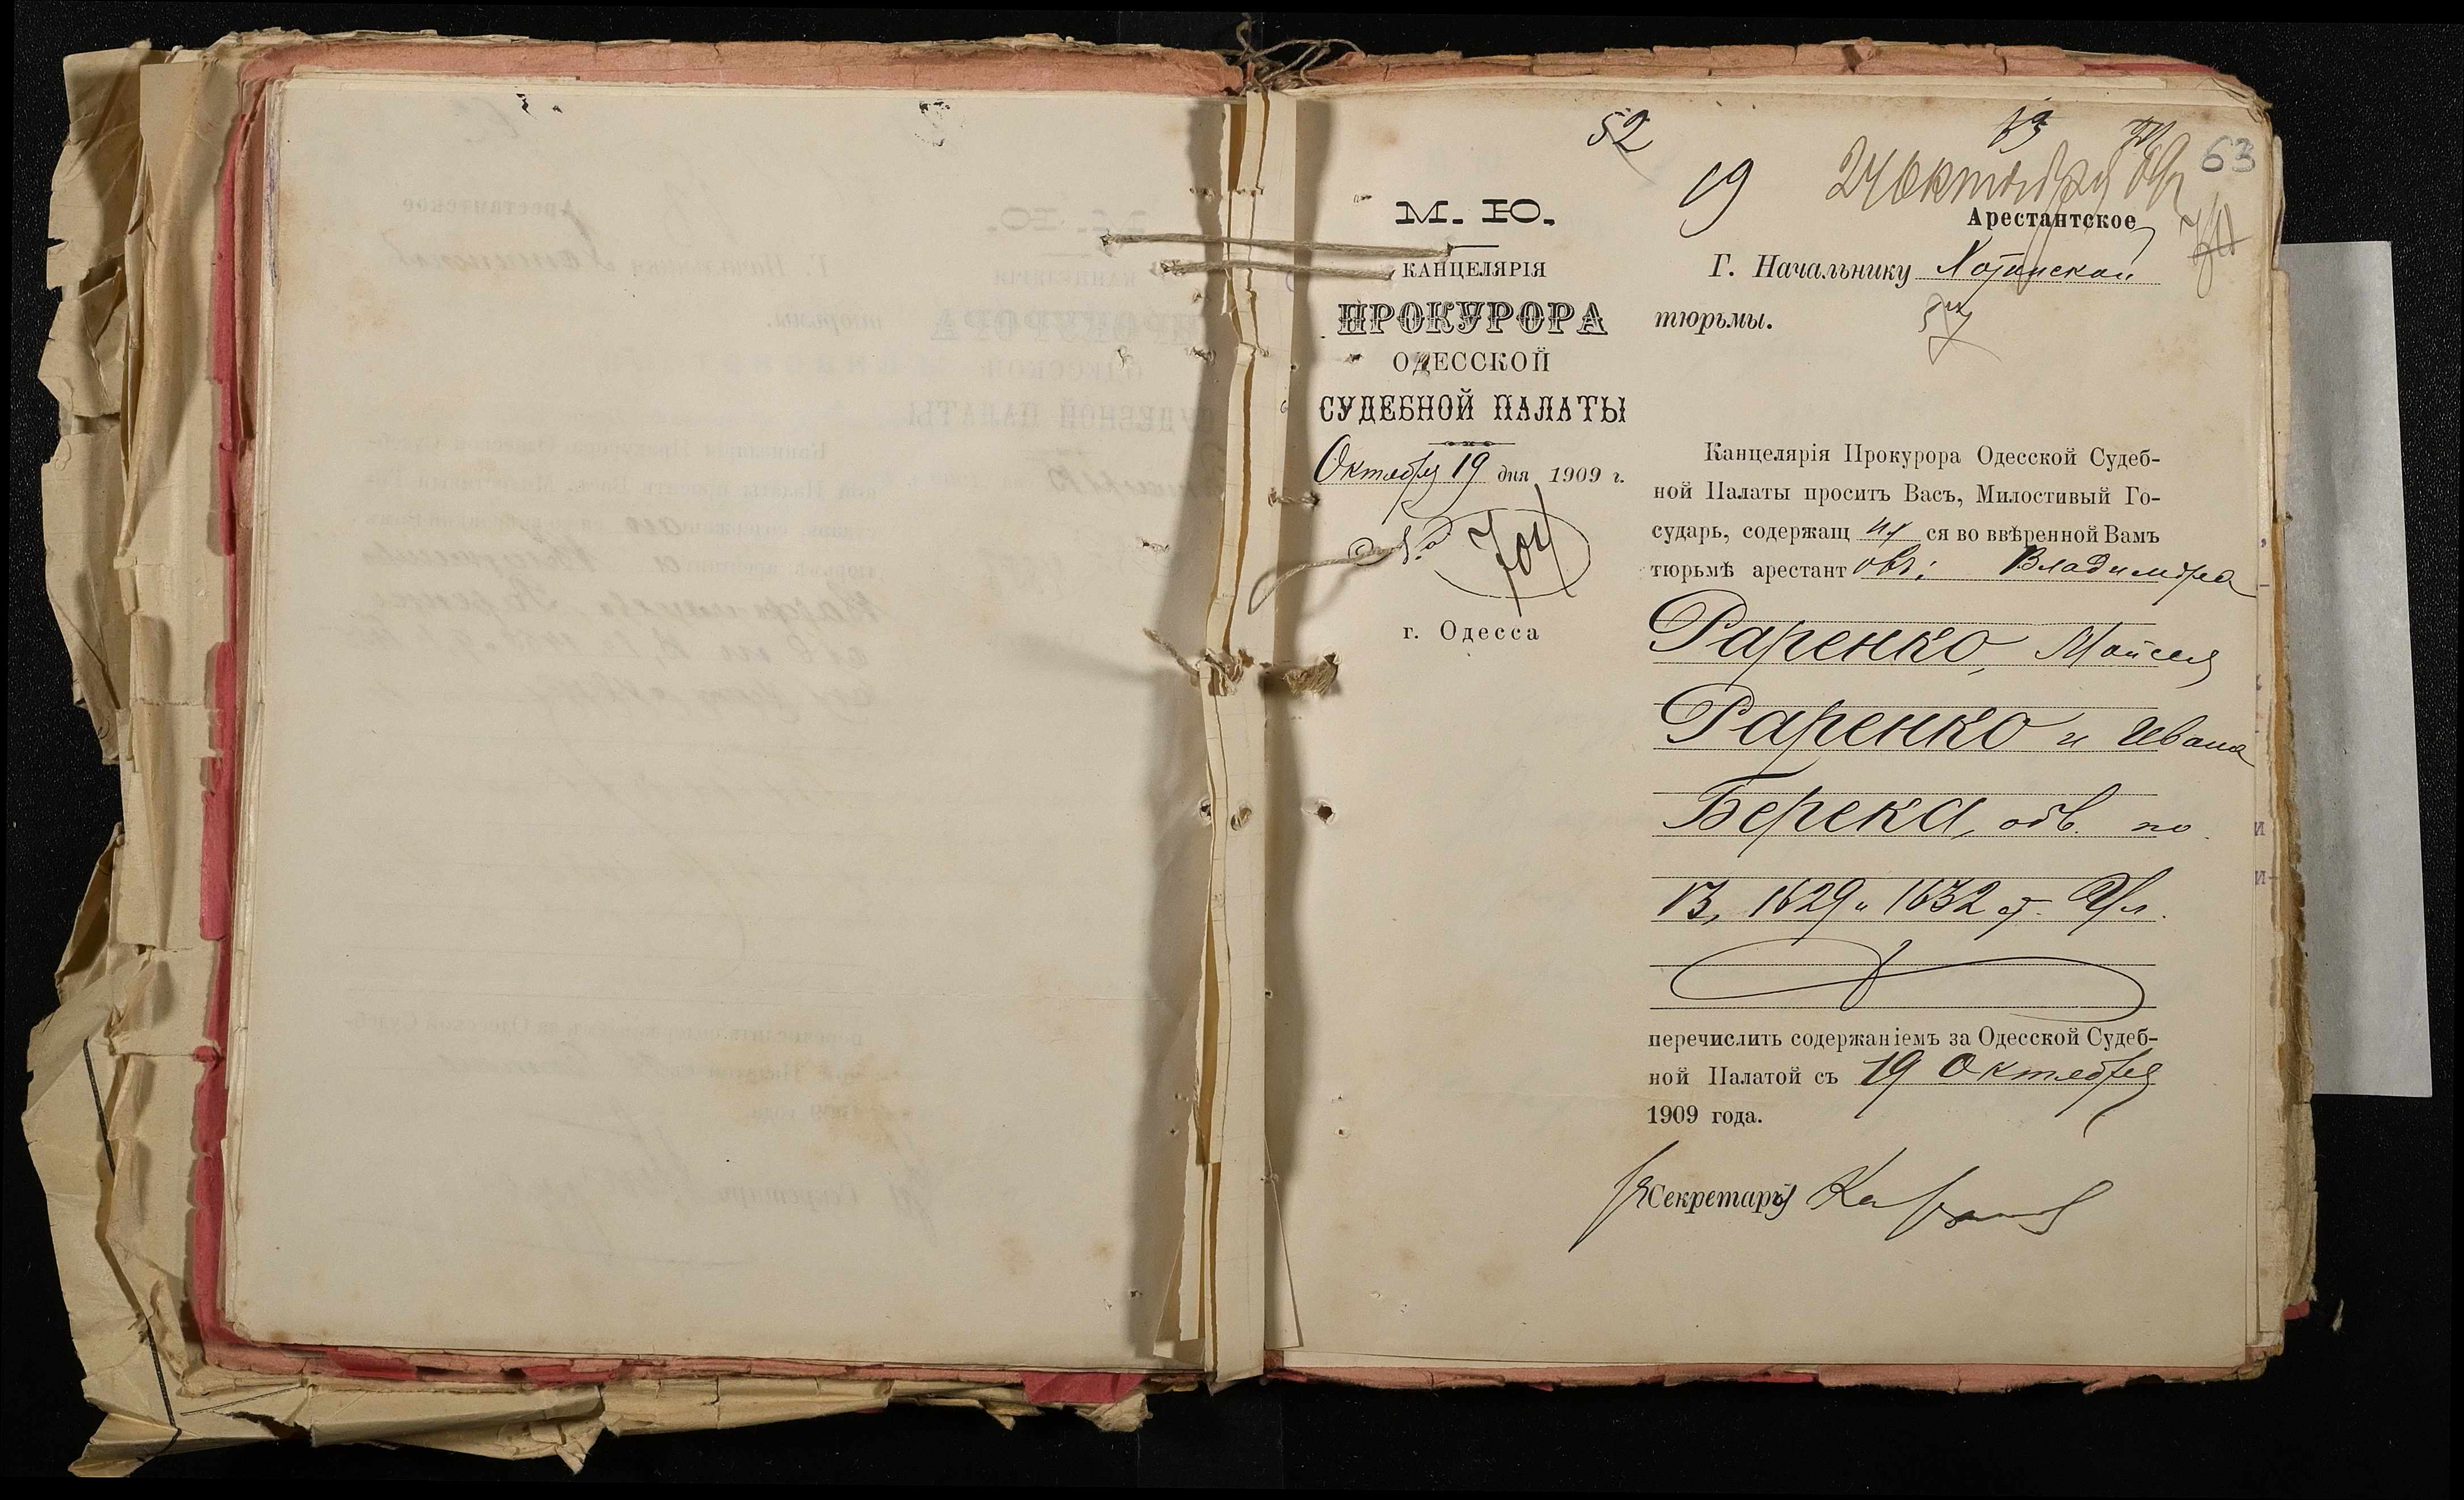 52
19
24 Октября 09 г.
63
М. Ю.
КАНЦЕЛЯРІЯ
ПРОКУРОРА
ОДЕССКОЙ
СУДЕБНОЙ ПАЛАТЫ
Октября 19 дня 1909 г.
№ 704
г. Одесса
Арестантское
Г. Начальнику Хотинской
тюрьмы.
Канцелярія Прокурора Одесской Судеб-
ной Палаты проситъ Васъ, Милостивый Го-
сударь, содержащ их ся во ввѣренной Вамъ
тюрьмѣ арестант овъ: Владимира
Раренко, Мойсея
Раренко и Ивана
Берека, обв. по
13, 1629 и 1632 ст. Ул.
перечислить содержаніемъ за Одесской Судеб-
ной Палатой съ 19 Октября
1909 года.
Секретаря